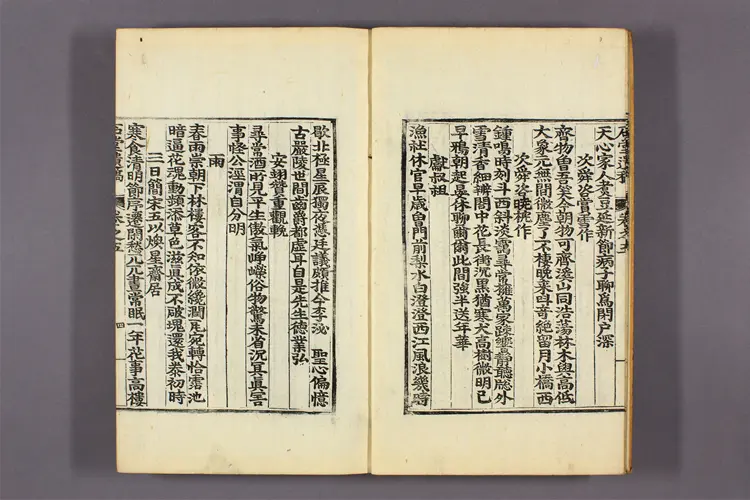 天心家人煑豆延新節病子聊爲閉户深
次舜咨嘗雪作
齊物曽吾笑今朝物可齊溪山同浩蕩林木與高低
大象元無間微塵了不棲晚来呌音絶留月小橋西
次舜咨晩桃作
鍾鳴時刻斗西斜淡靄尋常擁萬家疎靈靜聽牕外
雪清香細辨閤中花長街沉黒猶寒犬高樹微明已
早鴉朝起晏休聊爾爾此間強半送年華
獻叔祖
漁社休官早歳曽門前梨水白澄澄西江風浪幾時
歇北極星辰獨夜憑廷議頗推今李泌 聖心偏憶
古嚴陵世間齒爵都虚耳自是先生德業弘
安翊贊重觀輓
尋常酒所見平生傲氣崢嶸俗物驚未省沉冥眞害
事怪公涇渭自分明
雨
春雨崇朝下林樓客不知依微纔潤瓦宛轉恰霑池
暗逼花魂動頻添草色滋眞成不破塊還我泰初時
三日簡宋五以煥星齋居
寒食清明節序遷閉愁兀兀晝常眠一年花事高樓
卷之五
四